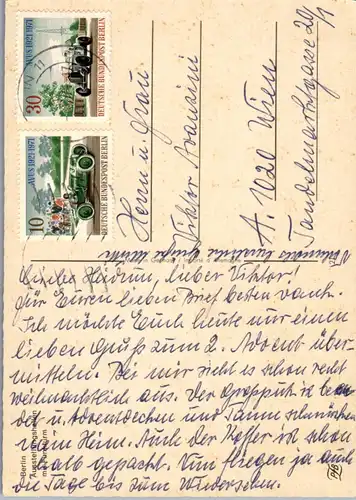 AVUS 1921-1971
30
DEUTSCHE BUNDESPOST BERLIN
AVUS 1921-1971
10
DEUTSCHE BUNDESPOST BERLIN
Herrn u. Frau
Viktor
A. 1020 Wien
Tandelmarktgasse 20/1
Liebe Heidrun, lieber Viktor!
Für Euren lieben Brief besten Dank.
Ich möchte Euch heute nur einen
lieben Gruß zum 2. Advent über-
mitteln. Bei mir sieht es schon recht
weihnachtlich aus. Der
u. Adventdecken und Tannen schmücken
mein Heim. Auch der Koffer ist schon
halb gepackt. Nun fliegen ja auch
die Tage bis zum Wiedersehen.
Berlin
Ausstellungshallen
am Funkturm